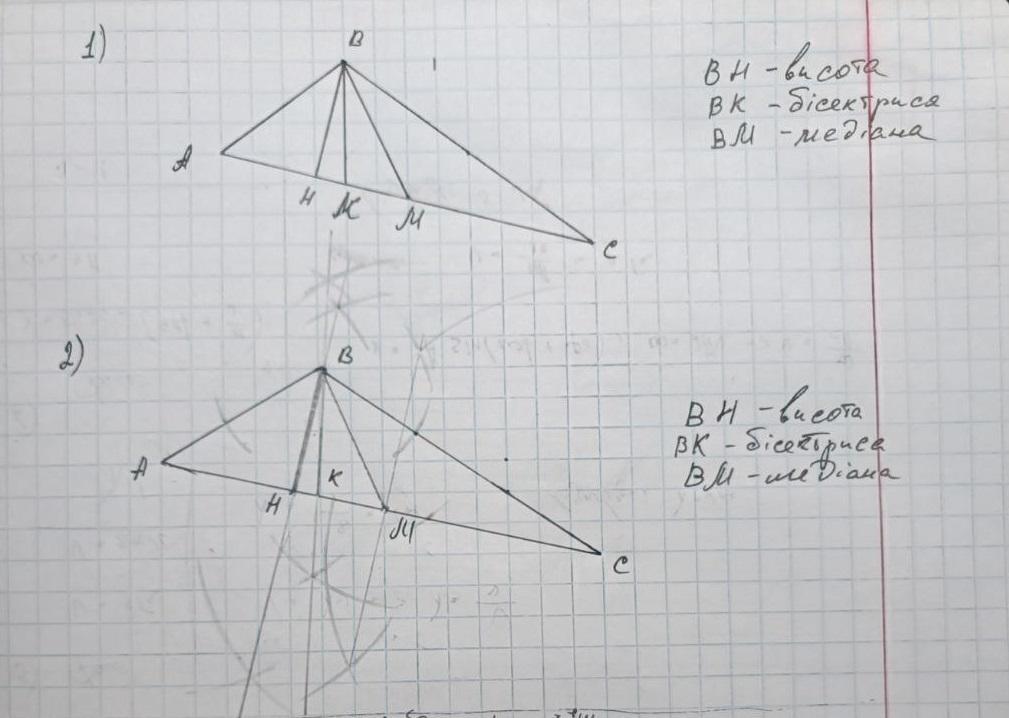 1)
B
A
H K M
C
BH - висота
BK - бісектриса
BM - медіана
2)
B
A
H K M
C
BH - висота
BK - бісектриса
BM - медіана